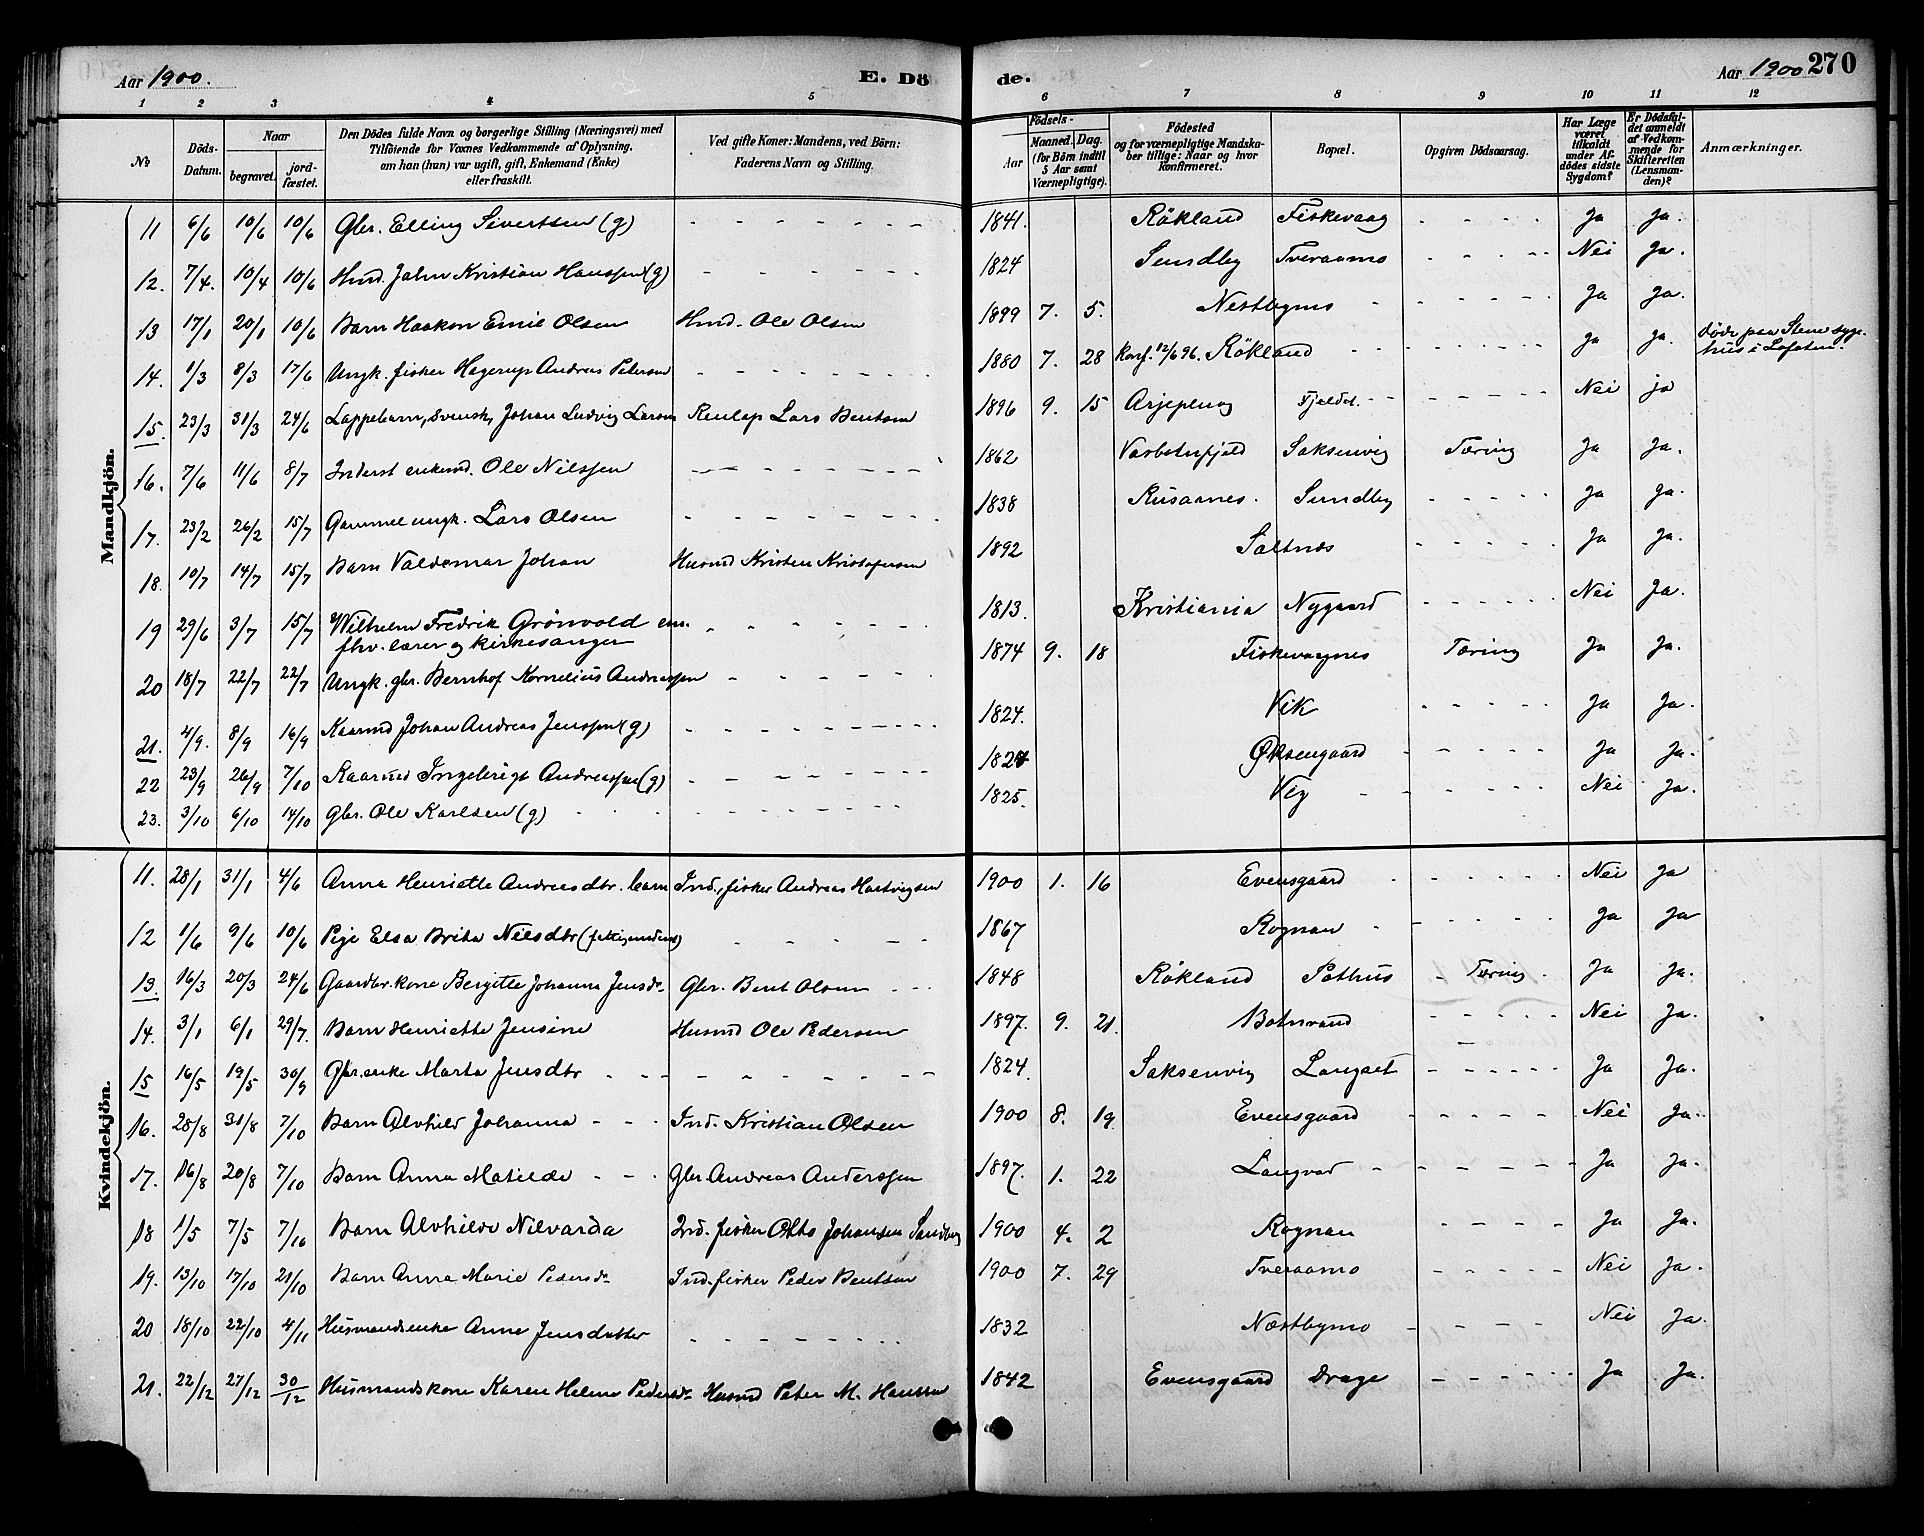 Aar 1900. E. Dö de. Aar 1900 270
1 2 3 4 5 6 7 8 9 10 11 12
№ Döds-Datum. Naar begravet. jord-fæstet. Den Dödes fulde Navn og borgerlige Stilling (Næringsvei) med Tilföiende for Voxnes Vedkommende af Oplysning, om han (hun) var ugift, gift, Enkemand (Enke) eller fraskilt. Ved gifte Koner: Mandens, ved Börn: Faderens Navn og Stilling. Födsels- Aar Maaned. Dag. (for Börn indtil 5 Aar samt Værnepligtige). Födested og for værnepligtige Mandskaber tillige: Naar og hvor konfirmeret. Bopæl. Opgiven Dödsaarsag. Har Læge været tilkaldt under Afdödes sidste Sygdom? Er Dödsfaldet anmeldt af Vedkommende for Skifteretten (Lensmanden)? Anmærkninger.
Mandkjön.
11 6/6 10/6 10/6 Gbr. Elling Sivertsen (g) 1841. Rökland Fiskevaag Ja Ja.
12. 7/4. 10/4 10/6 Hmd. John Kristian Hanssen (g) 1824 Sundby Tveraamo Nei Ja.
13 17/1 20/1 10/6 Barn Haakon Emil Olsen Hmd. Ole Olsen 1899 7. 5. Nestbymo Ja Ja.
14. 1/3 8/3 17/6 Ungk. fisker Hagerup Andreas Petersen 1880 7. 28 Konf. 12/6 96. Rökland Ja Ja. döde paa Stene syge-
hus i Lofoten.
15. 23/3 31/3 24/6 Lappebarn, svensk, Johan Ludvig Larsen Renlap Lars Bentsen 1896 9. 15 Arjeplog Fjeldet. Nei ja
16. 7/6 11/6 8/7 Inderst enkemd. Ole Nilssen 1862 Saksenvig Tæring Ja Ja.
17. 23/2 26/2 15/7 Gammel ungk. Lars Olsen 1838 Rusaanes. Sundby Ja Ja.
18. 10/7 14/7 15/7 Barn Valdemar Johan Husmd Kristen Kristofersen 1892 Saltnes Ja Ja.
19 29/6 3/7 15/7 Wilhelm Fredrik Grönvold em. 1813. Kristiania Nygaard Nei Ja.
fhv. lærer og kirkesanger
20 18/7 22/7 22/7 Ungk. gbr. Bernhof Kornelius Andreassen 1874 9. 18 Fiskevaagnes Tæring Ja Ja.
21. 4/9. 8/9 16/9 Kaarmd Johan Andreas Jenssen (g) 1824. Vik Ja Ja.
22 23/9 26/9 7/10 Kaarmd Ingebrigt Andreassen (g) Øksengaard Ja Ja.
23. 3/10 6/10 14/10 Gbr. Ole Karlsen (g) 1825. Vig Nei Ja.
Kvindekjön.
11. 28/1 31/1 4/6 Anna Henriette Andreasdtr. barn Ind., fisker Andreas Hartvigsen 1900 1. 16 Evensgaard Nei Ja
12 1/6 9/6 10/6 Pige Elsa Brita Nilsdtr 1867 Rognan Ja Ja
13. 16/3 20/3 24/6 Gaardbr. kone Bergitte Johanna Jensdr. Gbr. Bent Olsen 1848 Rökland Pothus Tæring Ja Ja.
14. 3/1 6/1 29/7. Barn Henriette Jensine Husmd Ole Pedersen 1897. 9. 21. Botnvand Nei Ja.
15 16/5 19/5 30/9 Gbr. enke Marta Jensdtr 1824. Saksenvig Langset Ja Ja.
16. 28/8 31/8 7/10 Barn Alvhild Johanna Ind. Kristian Olsen 1900 8. 19. Evensgaard Nei Ja.
17. 16/8 20/8 7/10 Barn Anna Matilde Gbr. Andreas Anderssen 1897. 1. 22 Langvad Ja Ja.
18 1/5 7/5 7/10 Barn Alvhilde Nilvarda Ind. fisker Otto Johansen Sundby 1900 4. 2 Rognan Ja Ja.
19. 13/10 17/10 21/10 Barn Anna Marie Pedersdr. Ind. fisker Peder Bentsen 1900 7. 29 Tveraamo Nei Ja.
20 18/10 22/10 4/11 Husmandsenke Anne Jensdatter 1832 Næstbymo Nei Ja.
21. 22/12 27/12 30/12 Husmandskone Karen Helene Pedersdr. Husmd Peter M. Hanssen 1842 Evensgaard Drage Ja Ja.